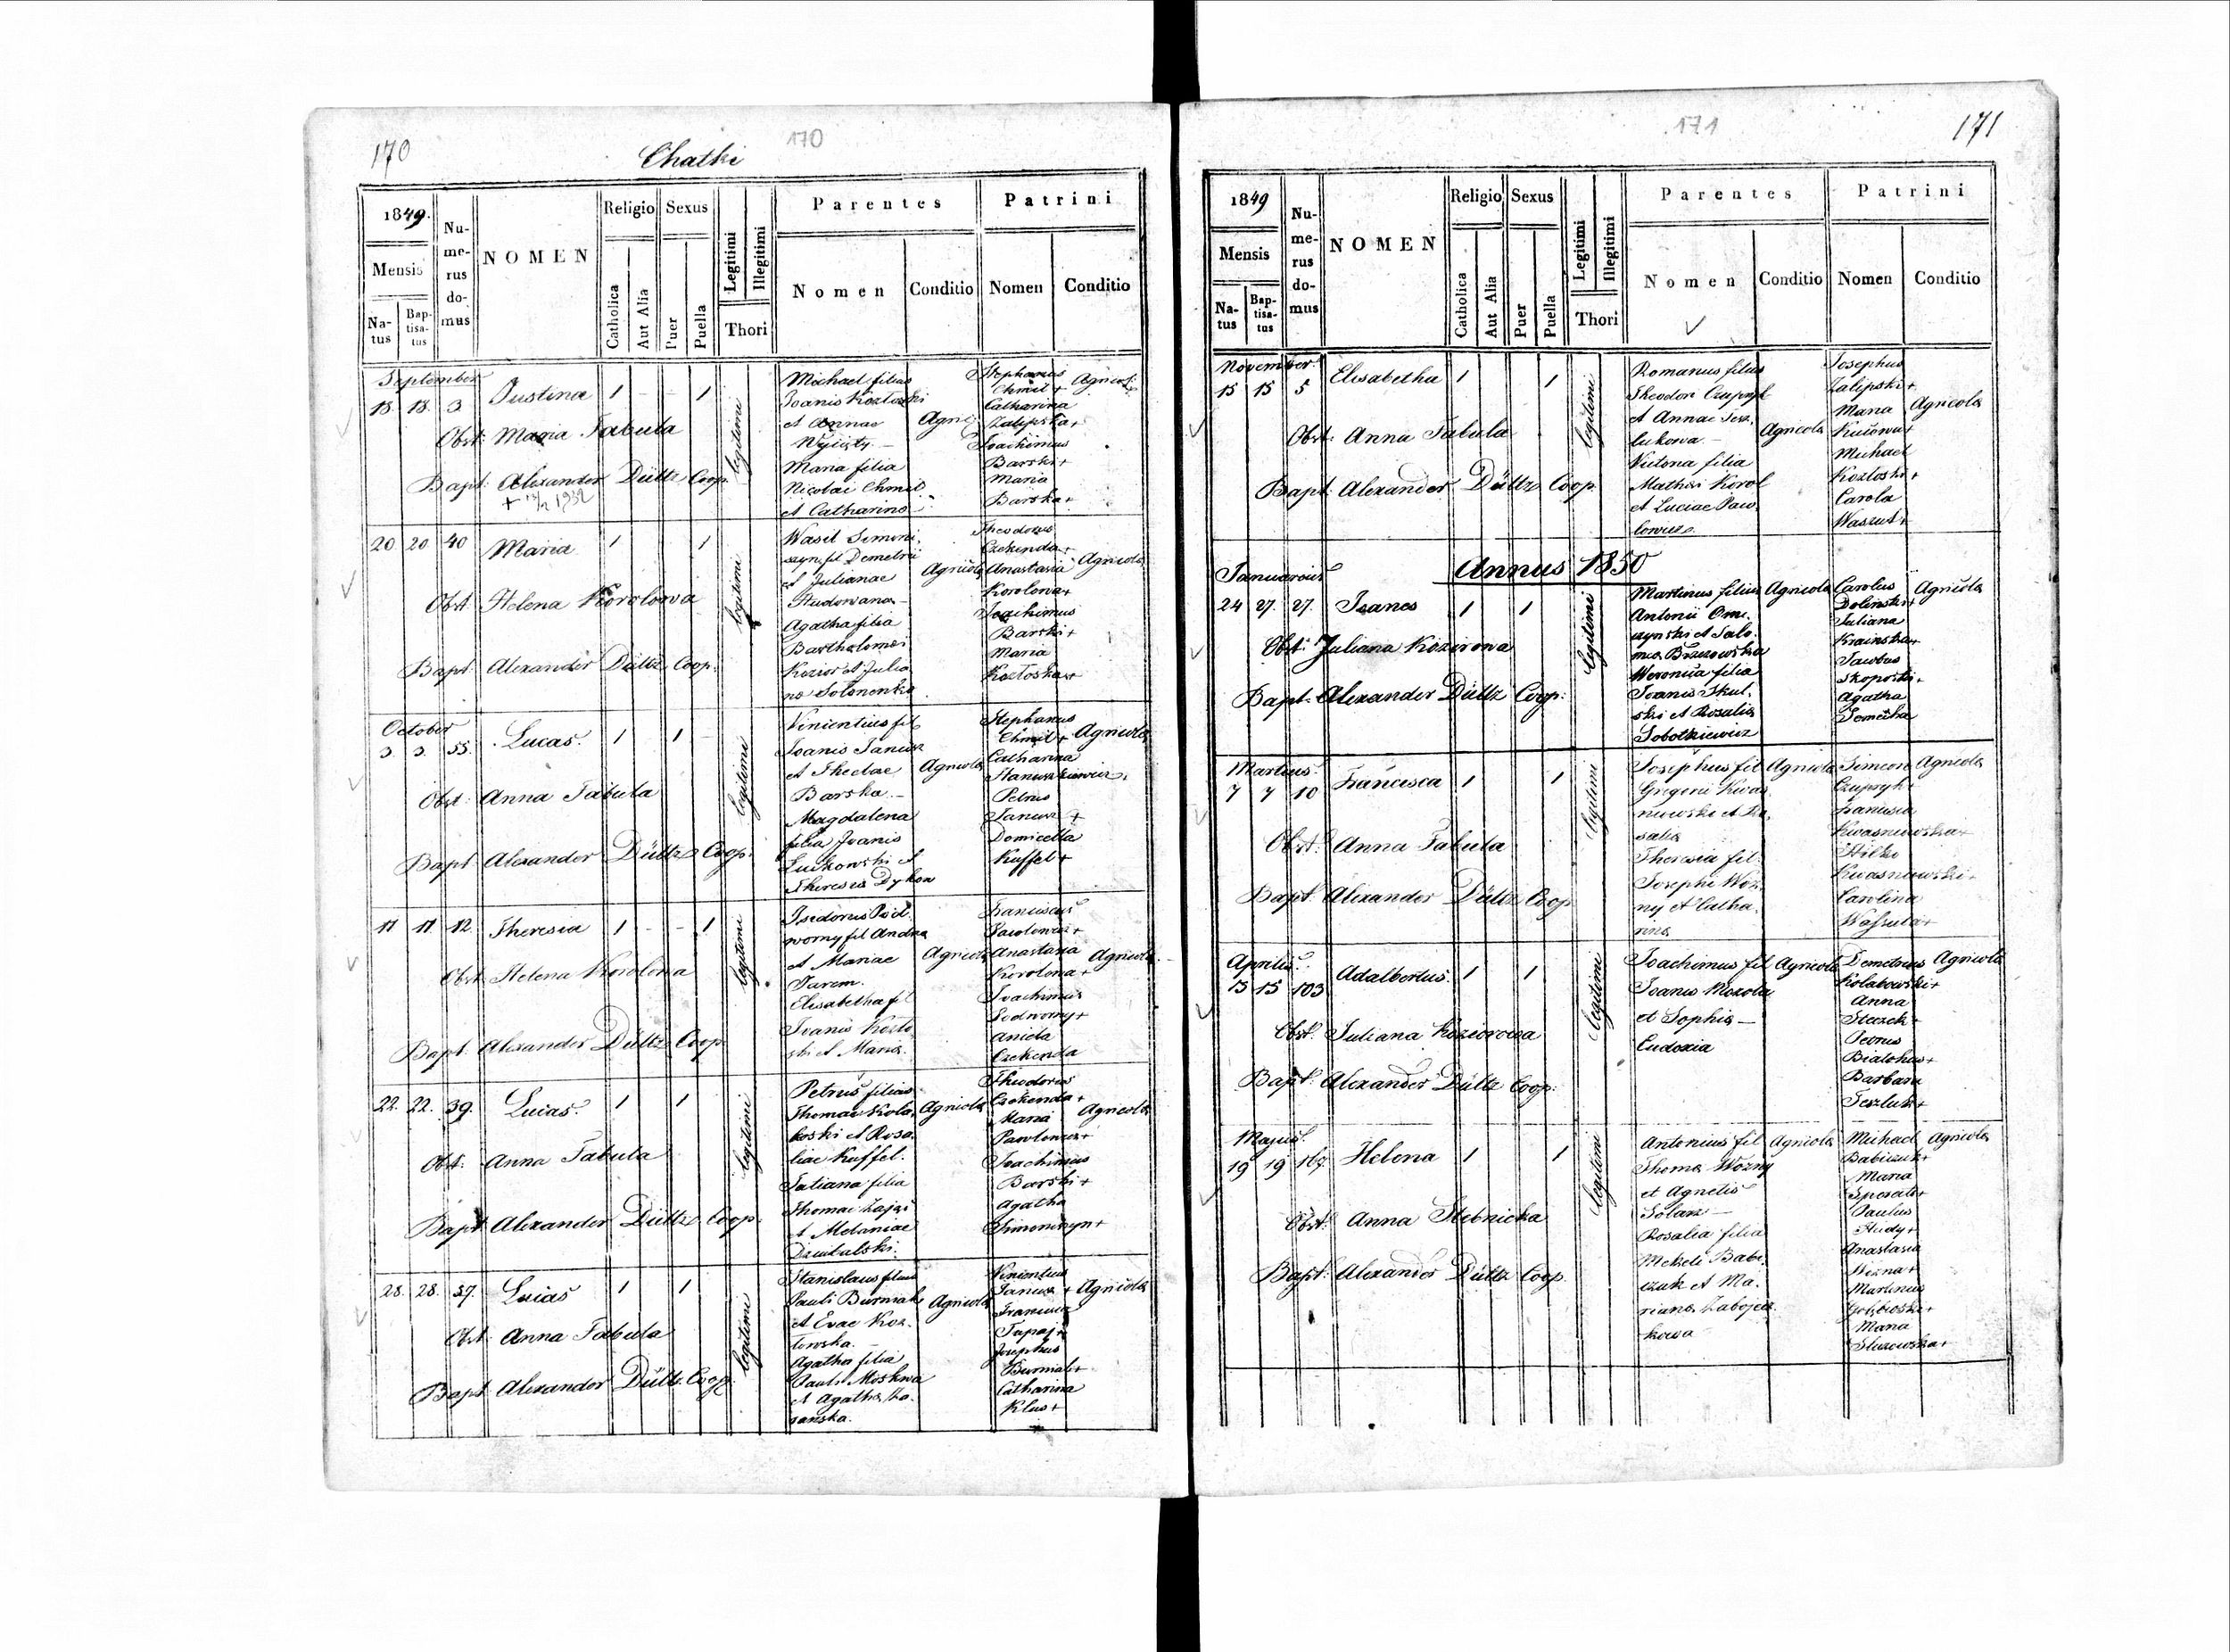 170
Chatki
170
1849.
Mensis
Na-
tus
Bap-
tisa-
tus
Nu-
me-
rus
do-
mus
NOMEN
Religio
Catholica
Aut Alia
Sexus
Puer
Puella
Legitimi
Illegitimi
Thori
Parentes
Nomen
Conditio
Patrini
Nomen
Conditio
September
18. 18. 3. Justina 1 - - 1
legitimi
Obst: Maria Tabula
Bapt: Alexander Dültz Coop.
Michael filius
Joanis Kozloski
et Annae
Maria filia
Nicolai Chmil
et Catharina
Agric:
Stephanus
Chmil +
Catharina
Zalipska +
Joachimus
Barski +
Maria
Barska +
Agricol:
20 20 40 Maria 1 1
legitimi
Obst: Helena Korolowa
Bapt: Alexander Dültz Coop:
Wasil Simoni
szyn fil Demetrii
et Julianae
Studowana -
Agatha filia
Bartholomei
Kozior et Julia
na Solonenko
Agricola
Theodorus
Czekenda +
Anastasia
Korolowa +
Joachimus
Barski +
Maria
Kozloska +
Agricola
October
3. 3. 55. Lucas. 1 1 -
legitimi
Obst: Anna Tabula
Bapt: Alexander Dültz Coop.
Vincentius fil
Joanis Janusz
et Theclae
Barska -
Magdalena
filia Joanis
Luckowski et
Theresia Dykow
Agricola
Stephanus
Chmil +
Catharina
Petrus
Janusz +
Domicella
Kuffel +
Agricola
11 11. 12. Theresia 1 - - 1
legitimi
Obst: Helena Korolowa
Bapt: Alexander Dültz Coop
Isidorus Pod
worny fil Andrea
et Mariae
Jarem.
Elisabetha fil
Joanis Kozlo
ski et Maria.
Agricola
Franciscus
Pawlowicz +
Anastasia
Korolowa +
Joachimus
Podworny +
Aniela
Czekenda
Agricola
22. 22. 39. Lucas. 1 1
legitimi
Obst: Anna Tabula
Bapt: Alexander Dültz Coop.
Petrus filius
Thomae Kola
koski et Rosa
liae Kuffel.
Tatiana filia
Thomae Zajac
et Melaniae
Agricola
Theodorus
Czekenda +
Maria
Pawlowicz +
Joachimus
Barski +
Agatha
Simoniszyn +
Agricola
28. 28. 37. Lucas 1 1
legitimi
Obst: Anna Tabula
Bapt: Alexander Dültz Coop.
Stanislaus filius
Pauli Burniak
et Evae Koz-
lowska. -
Agatha filia
Pauli Moskwa
et Agatha Za-
ranska.
Agricola
Vincentius
Janusz +
Josephus
Burniak +
Catharina
Klus +
Agricola
171
171
1849
Mensis
Na-
tus
Bap-
tisa-
tus
Nu-
me-
rus
do-
mus
NOMEN
Religio
Catholica
Aut Alia
Sexus
Puer
Puella
Legitimi
Illegitimi
Thori
Parentes
Nomen
Conditio
Patrini
Nomen
Conditio
November.
15 15 5 Elisabetha 1 1
legitimi
Obst: Anna Tabula
Bapt: Alexander Dültz Coop.
Romanus filius
Theodori Czupryk
et Annae Tesz-
lukowa -
Victoria filia
Mathei Korol
et Luciae Paw
lowicz.
Agricola
Josephus
Zalipski +
Maria
Michael
Kozloski +
Carola
Waszut +
Agricola
Annus 1850
Januarius
24 27. 27. Joanes 1 1
legitimi
Obst: Juliana Kozirowa
Bapt: Alexander Dültz Coop:
Martinus filius
Antonii Omi-
szynski et Salo-
mea Brzozowska
Weronica filia
Joanis Skul-
ski et Rosalia
Sobotkiewicz
Agricola
Carolus
Dolinski +
Juliana
Krainska +
Jacobus
Skoporski +
Agatha
Agricola
Martius
7 7 10 Francisca 1 1
legitimi
Obst: Anna Tabula
Bapt: Alexander Dültz Coop
Josephus fil
Gregorii Kwas
niewski et Ro-
salia
Theresia fil
Josephi Woz-
ny et Catha-
rina
Agricola
Simeon
Czupryk +
Francisca
Kwasniewska +
Hilko
Kwasniewski +
Carolina
Waszuta +
Agricola
Aprilis
15 15 103 Adalbertus. 1 1
legitimi
Obst: Juliana Koziorowa
Bapt: Alexander Dültz Coop:
Joachimus fil
Joanis Mozola
et Sophia -
Eudoxia
Agricola
Demetrius
Kolakowski +
Anna
Steczek +
Petrus
Barbara
Teszluk +
Agricola
Majus.
19 19 169. Helena 1 1
legitimi
Obst: Anna Stebnicka
Bapt: Alexander Dültz Coop.
Antonius fil
Thoma Wozny
et Agnetis
Solarz -
Rosalia filia
Babi-
czuk et Ma-
riana
kowa
Agricola
Michael
Babiczuk +
Maria
Paulus
Study +
Anastasia
Martinus
Maria
Agricola